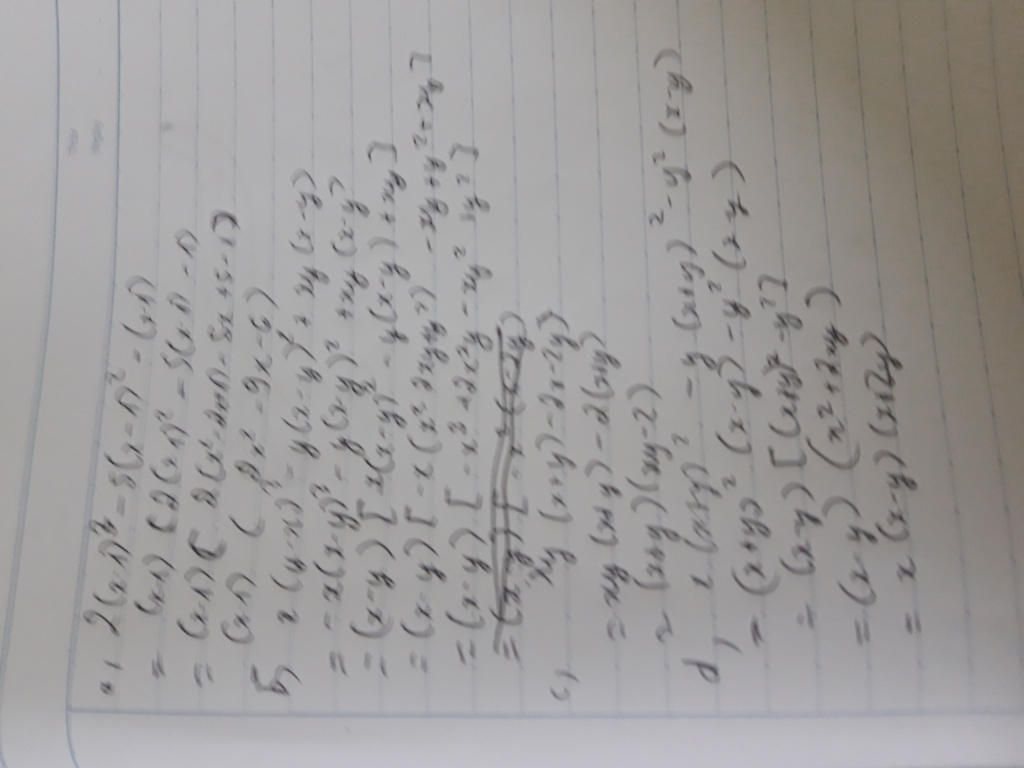 a, 2(x-1)³ - 5(x-1)² - (x-1)
= (x-1) [2(x-1)² - 5(x-1) - 1]
= (x-1) ( 2(x² - 2x+1) - 5x+5-1)
(x-1) ( 2x² - 9x - 6)
b, x(y-x)³ - y(x-y)² + xy(x-y)
= -x(x-y)³ - y(x-y)² + xy(x-y)
= (x-y) [-x(x-y)² - y(x-y) + xy]
= (x-y) [-x(x² - 2xy+y²) - xy+y² + xy]
= (x-y) [-x³ + 2x²y - xy² + y²]
c, xy(x+y) - 2x - 2y
= xy(x+y) - 2(x+y)
= (x+y)(xy-2)
d, x(x+y)² - y(x+y)² - y²(x-y)
= (x+y)²(x-y) - y²(x-y)
= (x-y) [(x+y)² - y²]
= (x-y) (x² + 2xy)
= x(x-y)(x+2y)